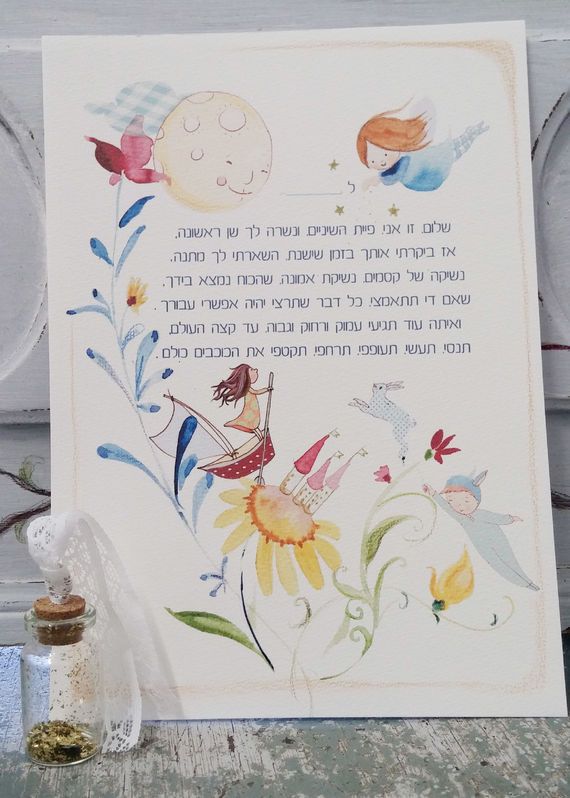 ל_________
שלום, זו אני, פיית השיניים, ונשרה לך שן ראשונה,
אז ביקרתי אותך בזמן שישנת, השארתי לך מתנה.
נשיקה של קסמים, נשיקת אמונה, שהכוח נמצא בידך,
שאם די תתאמצי, כל דבר שתרצי יהיה אפשרי עבורך.
ואיתה עוד תגיעי עמוק ורחוק וגבוה, עד קצה העולם,
תנסי, תעשי, תעופפי, תרחפי, תקטפי את הכוכבים כולם.